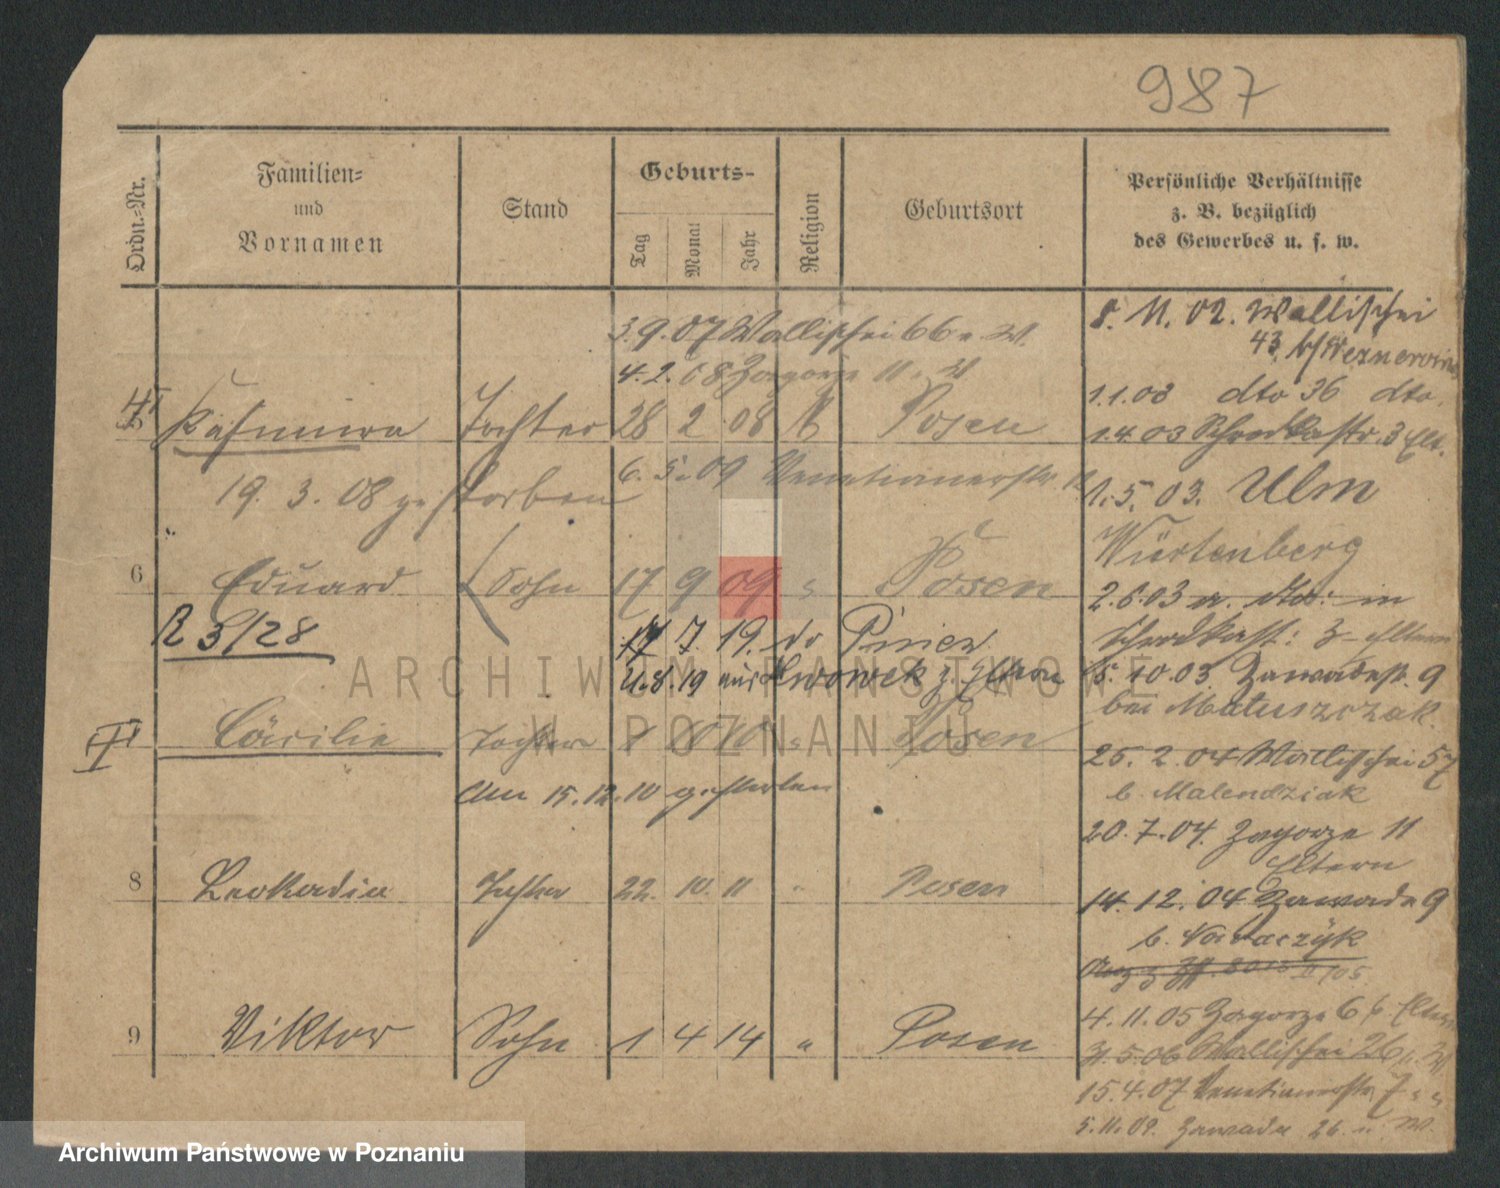 987
Ordn.-Nr.
Familien-
und
Vornamen
Stand
Geburts-
Tag
Monat
Jahr
Religion
Geburtsort
Persönliche Verhältnisse
z. B. bezüglich
des Gewerbes u. s. w.
3.9.07 Wallischei 66 u. W.
4.2.08 Zagorze 11 u. W
Kasimira Tochter 28 2 08 k Posen
19. 3. 08 gestorben
6. 5. 09 Venetianerstr.
6 Eduard Sohn 17 9 09 " Posen
R 3/28
17 7. 19. do
11.8.19 aus Lwowek z. Eltern
Cäcilie Tochter 10 10 " Posen
Am 15.12.10 gestorben
8 Leokadia Tochter 22. 10 11 " Posen
9 Viktor Sohn 1 4 14 " Posen
8. 11. 02. Wallischei
43
1.1.03 dto 36 dto.
1.4.03 Schrodkastr. 3 Elt.
1.5.03. Ulm
Würtenberg
2.6.03 in
Schrodkastr: 3 Eltern
15.10.03 Zawadestr. 9
bei Matuszczak.
25. 2. 04 Wallischei 57
b. Malendziak
20.7.04. Zagorze 11
Eltern
14. 12. 04 Zawade 9
b. Nowaczyk
4.11.05 Zagorze 6 b. Eltern
31.5.06 Wallischei 26 u. W
15.4.07 Venetianerstr. 7 " "
5.11.09. Zawade 26 u. W.
ARCHIWUM PAŃSTWOWE
W POZNANIU
Archiwum Państwowe w Poznaniu